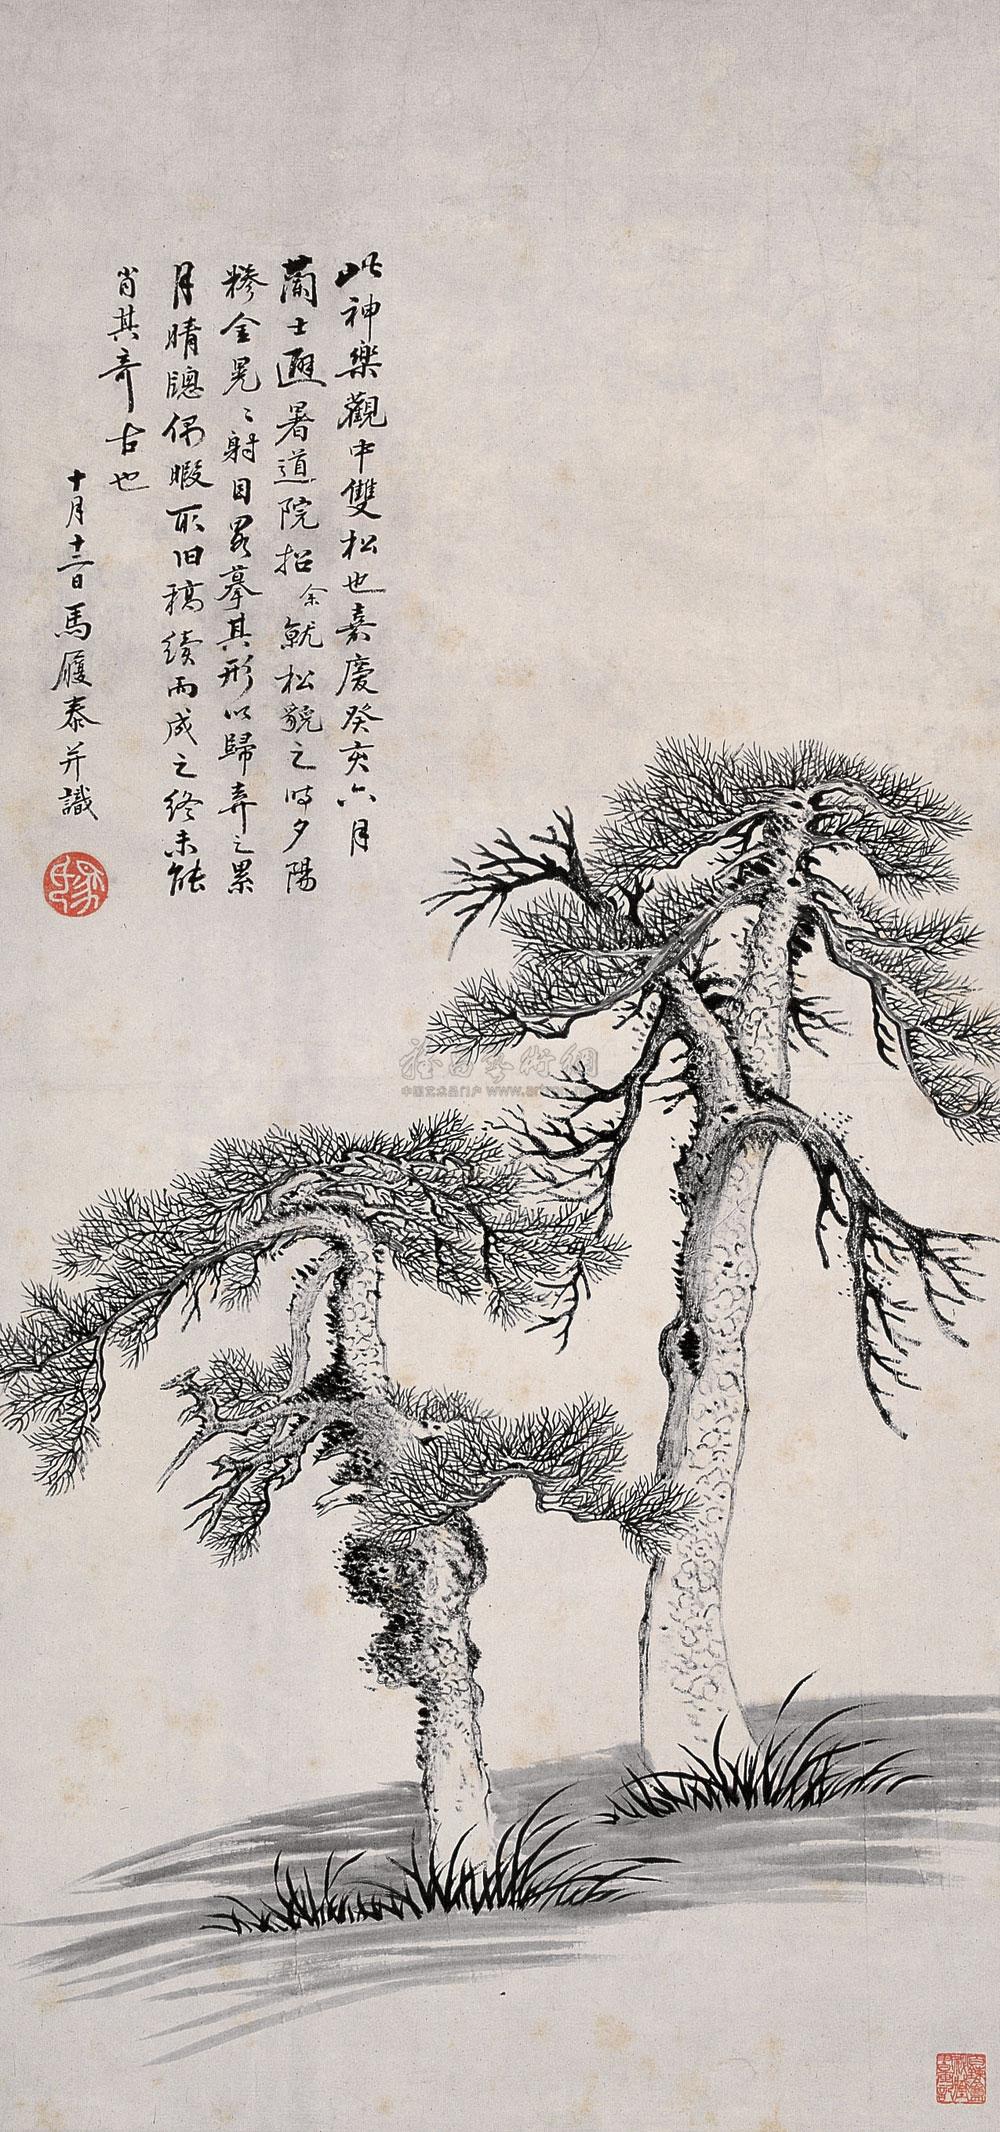 此神樂觀中雙松也嘉慶癸亥六月
蘭士遯暑道院招余就松貌之時夕陽
糝金晃〻射目畧摹其形以歸弆之累
月晴窻偶暇取旧稿續而成之終未能
肖其奇古也
十月十二日馬履泰并識
中国艺术品门户 www.art